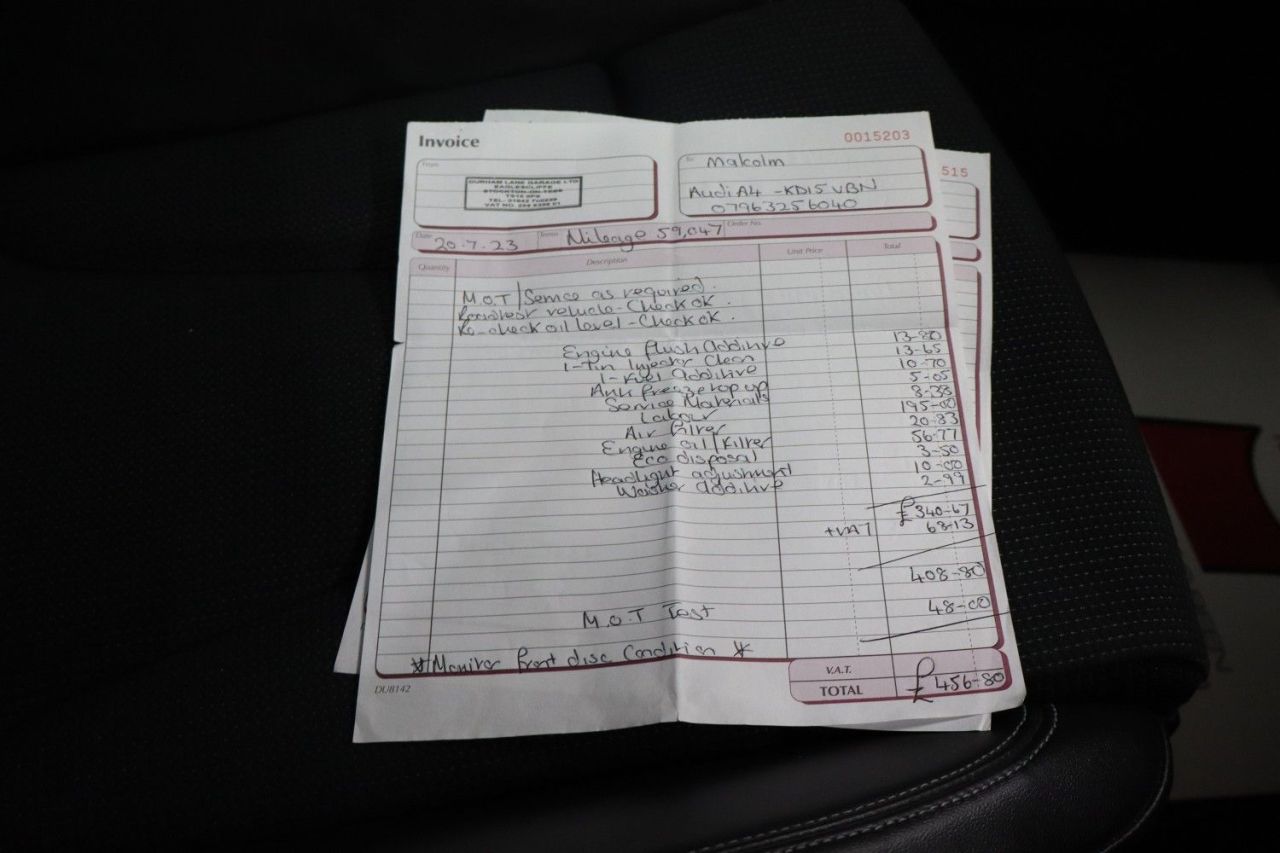 Invoice
0015203
From
DURHAM LANE GARAGE LTD
EAGLESCLIFFE
STOCKTON-ON-TEES
VAT NO.
To
Malcolm
Audi A4 - KD15 VBN
07963256040
515
Date
20.7.23
Terms
Mileage 59,047
Order No.
Quantity
Description
Unit Price
Total
M.O.T/Service as required.
Roadtest vehicle - Check ok.
Re-check oil level - Check ok.
Engine flush additive 13-80
1-Tin Injector Clean 13-65
1-Fuel Additive 10-70
Anti freeze top up 5-05
Service Materials 8-38
Labour 195-00
Air Filter 20-83
Engine oil/Filter 56-77
Eco disposal 3-50
Headlight adjustment 10-00
Washer additive 2-99
£340-67
+VAT 68-13
408-80
M.O.T Test 48-00
*Monitor front disc condition *
V.A.T.
TOTAL £456-80
DU8142